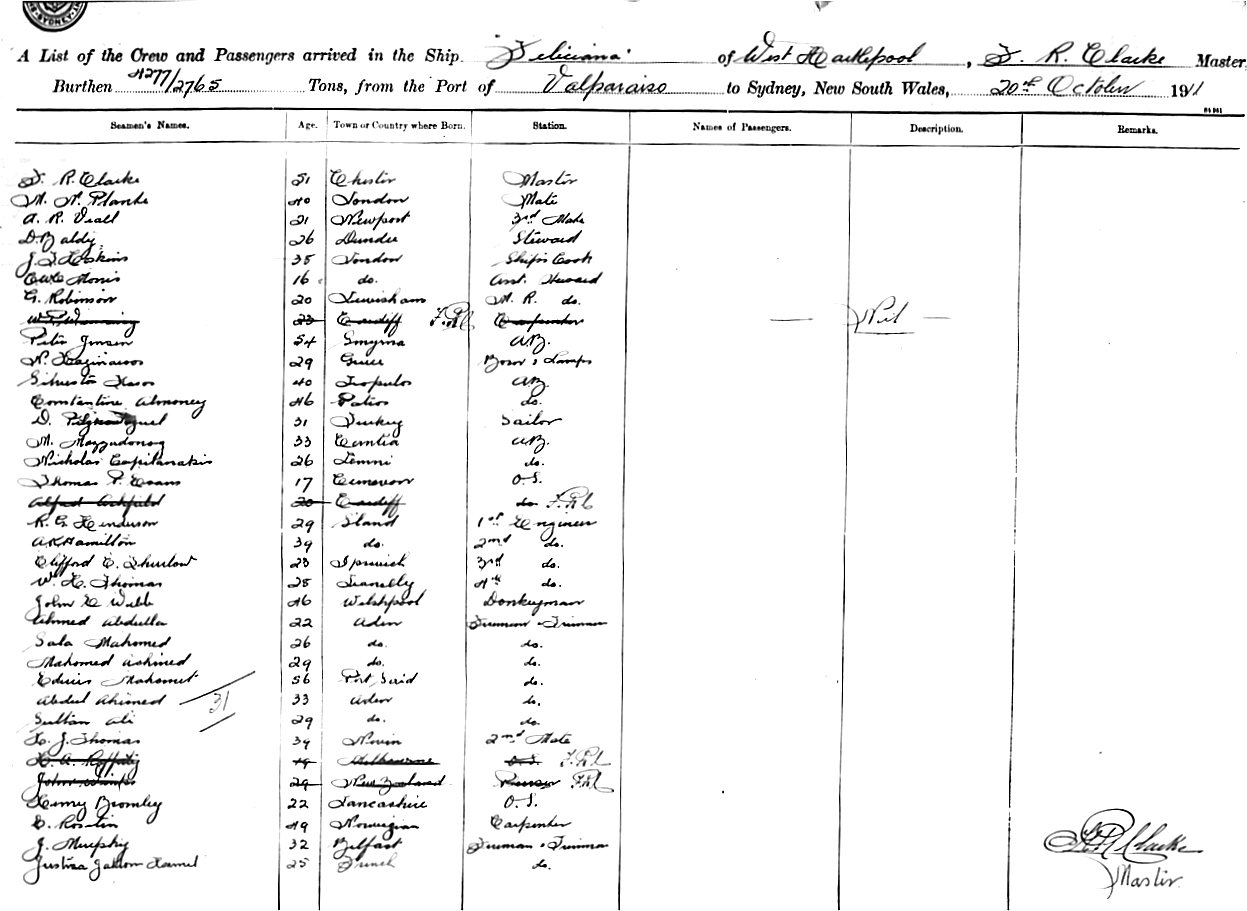 SYDNEY
A List of the Crew and Passengers arrived in the Ship Feliciana of West Hartlepool, F. R. Clarke Master
Burthen 4277/2765 Tons, from the Port of Valparaiso to Sydney, New South Wales, 20th October 1911
Seamen's Names. Age. Town or Country where Born. Station. Names of Passengers. Description. Remarks.
F. R. Clarke 51 Chester Master
40 London Mate
A. R. Viall 21 Newport 3rd Mate
D. Baldy 26 Dundee Steward
J. F. Hoskins 35 London Ship's Cook
Morris 16 do. Asst. Steward
G. Robinson 20 Lewisham M. R. do.
23 Cardiff F.R.C Carpenter — Nil —
Peter Jensen 54 Smyrna A.B.
29 Greece Bosn & Lamps
40 A.B.
Constantine Almoney 46 Patios do.
D. 31 Turkey Sailor
M. 33 A.B.
Nicholas Capilanakis 26 Lemni do.
Thomas P. Evans 17 O.S.
Alfred 20 Cardiff do F.R.C
R. G. Henderson 29 1st Engineer
A K Hamilton 39 do. 2nd do.
Clifford C. Thurlow 23 Ipswich 3rd do.
W. H. Thomas 25 Llanelly 4th do.
John E Webb 46 Welshpool Donkeyman
Ahmed Abdulla 22 Aden Fireman & Trimmer
Sala Mahomed 26 do. do.
Mahomed Achimed 29 do. do.
Edwin Mahomet 56 Port Said do.
Abdul Ahimed 31 33 Aden do.
Sultan Ali 29 do. do.
H. J. Thomas 39 Nevin 2nd Mate
H. A. Melbourne O.S. F.R.C
John 29 New Zealand F.R.C
Henry Bromley 22 Lancashire O.S.
49 Norwegian Carpenter
J. Murphy 32 Belfast Fireman & Trimmer
25 French do.
F R Clarke
Master